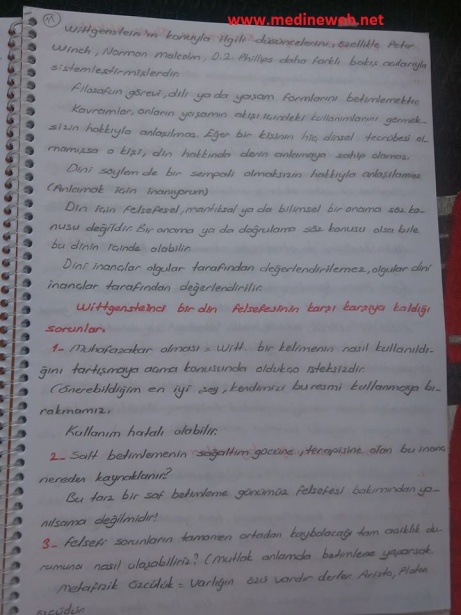 www.medineweb.net
11
Wittgenstein'ın konuyla ilgili düşüncelerini, özellikle Peter
Winch, Norman Malcolm, D.Z. Phillips daha farklı bakış açılarıyla
sistemleştirmişlerdir.
Filozofun görevi, dili ya da yaşam formlarını betimlemektir.
Kavramlar, onların yaşamın akışı içindeki kullanımlarını görmek-
sizin hakkıyla anlaşılmaz. Eğer bir kişinin hiç dinsel tecrübesi ol-
mamışsa o kişi, din hakkında derin anlamaya sahip olamaz.
Dini söylem de bir sempati olmaksızın hakkıyla anlaşılamaz
(Anlamak için inanıyorum)
Din için felsefesel, mantıksal ya da bilimsel bir onama söz ko-
nusu değildir. Bir onama ya da doğrulama söz konusu olsa bile
bu dinin içinde olabilir.
Dini inançlar olgular tarafından değerlendirilemez, olgular dini
inançlar tarafından değerlendirilir.
Wittgensteincı bir din felsefesinin karşı karşıya kaldığı
sorunlar:
1- Muhafazakar olması = Witt. bir kelimenin nasıl kullanıldı-
ğını tartışmaya açma konusunda oldukça isteksizdir.
(Önerebildiğim en iyi şey, kendimizi bu resmi kullanmaya bı-
rakmamız.
Kullanım hatalı olabilir.
2- Salt betimlemenin sağaltım gücüne, terapisine olan bu inanç
nereden kaynaklanır?
Bu tarz bir saf betimleme günümüz felsefesi bakımından ya-
nılsama değilmidir!
3- Felsefi sorunların tamamen ortadan kaybolacağı tam açıklık du-
rumuna nasıl ulaşabiliriz? (Mutlak anlamda betimleme yaparsak
Metafizik özcülük = Varlığın özü vardır derler. Aristo, Platon
özcüdür.